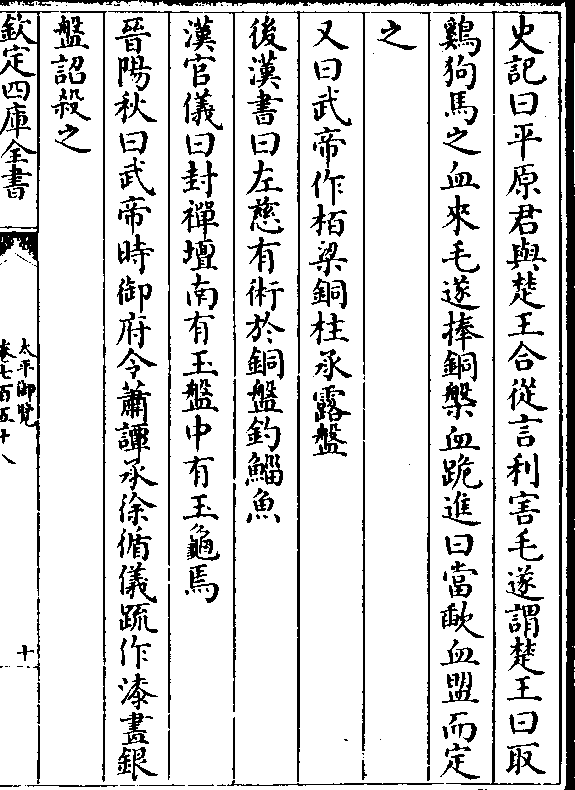 史記曰平原君與楚王合從言利害毛遂謂楚王曰取
鷄狗馬之血來毛遂捧銅槃血跪進曰當歃血盟而定
之
又曰武帝作栢梁銅柱承露盤
後漢書曰左慈有術於銅盤釣鯔魚
漢官儀曰封禪壇南有玉盤中有玉龜焉
晉陽秋曰武帝時御府令蕭譚承徐循儀疏作漆畫銀
盤詔殺之
欽定四庫全書
太平御覽
卷七百五十八
十